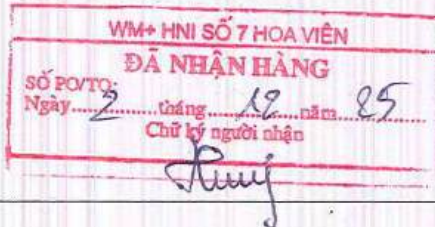 WM+ HNI SỐ 7 HOA VIÊN
ĐÃ NHẬN HÀNG
SỐ PO/TO:
Ngày 2 tháng 12 năm 25
Chữ ký người nhận